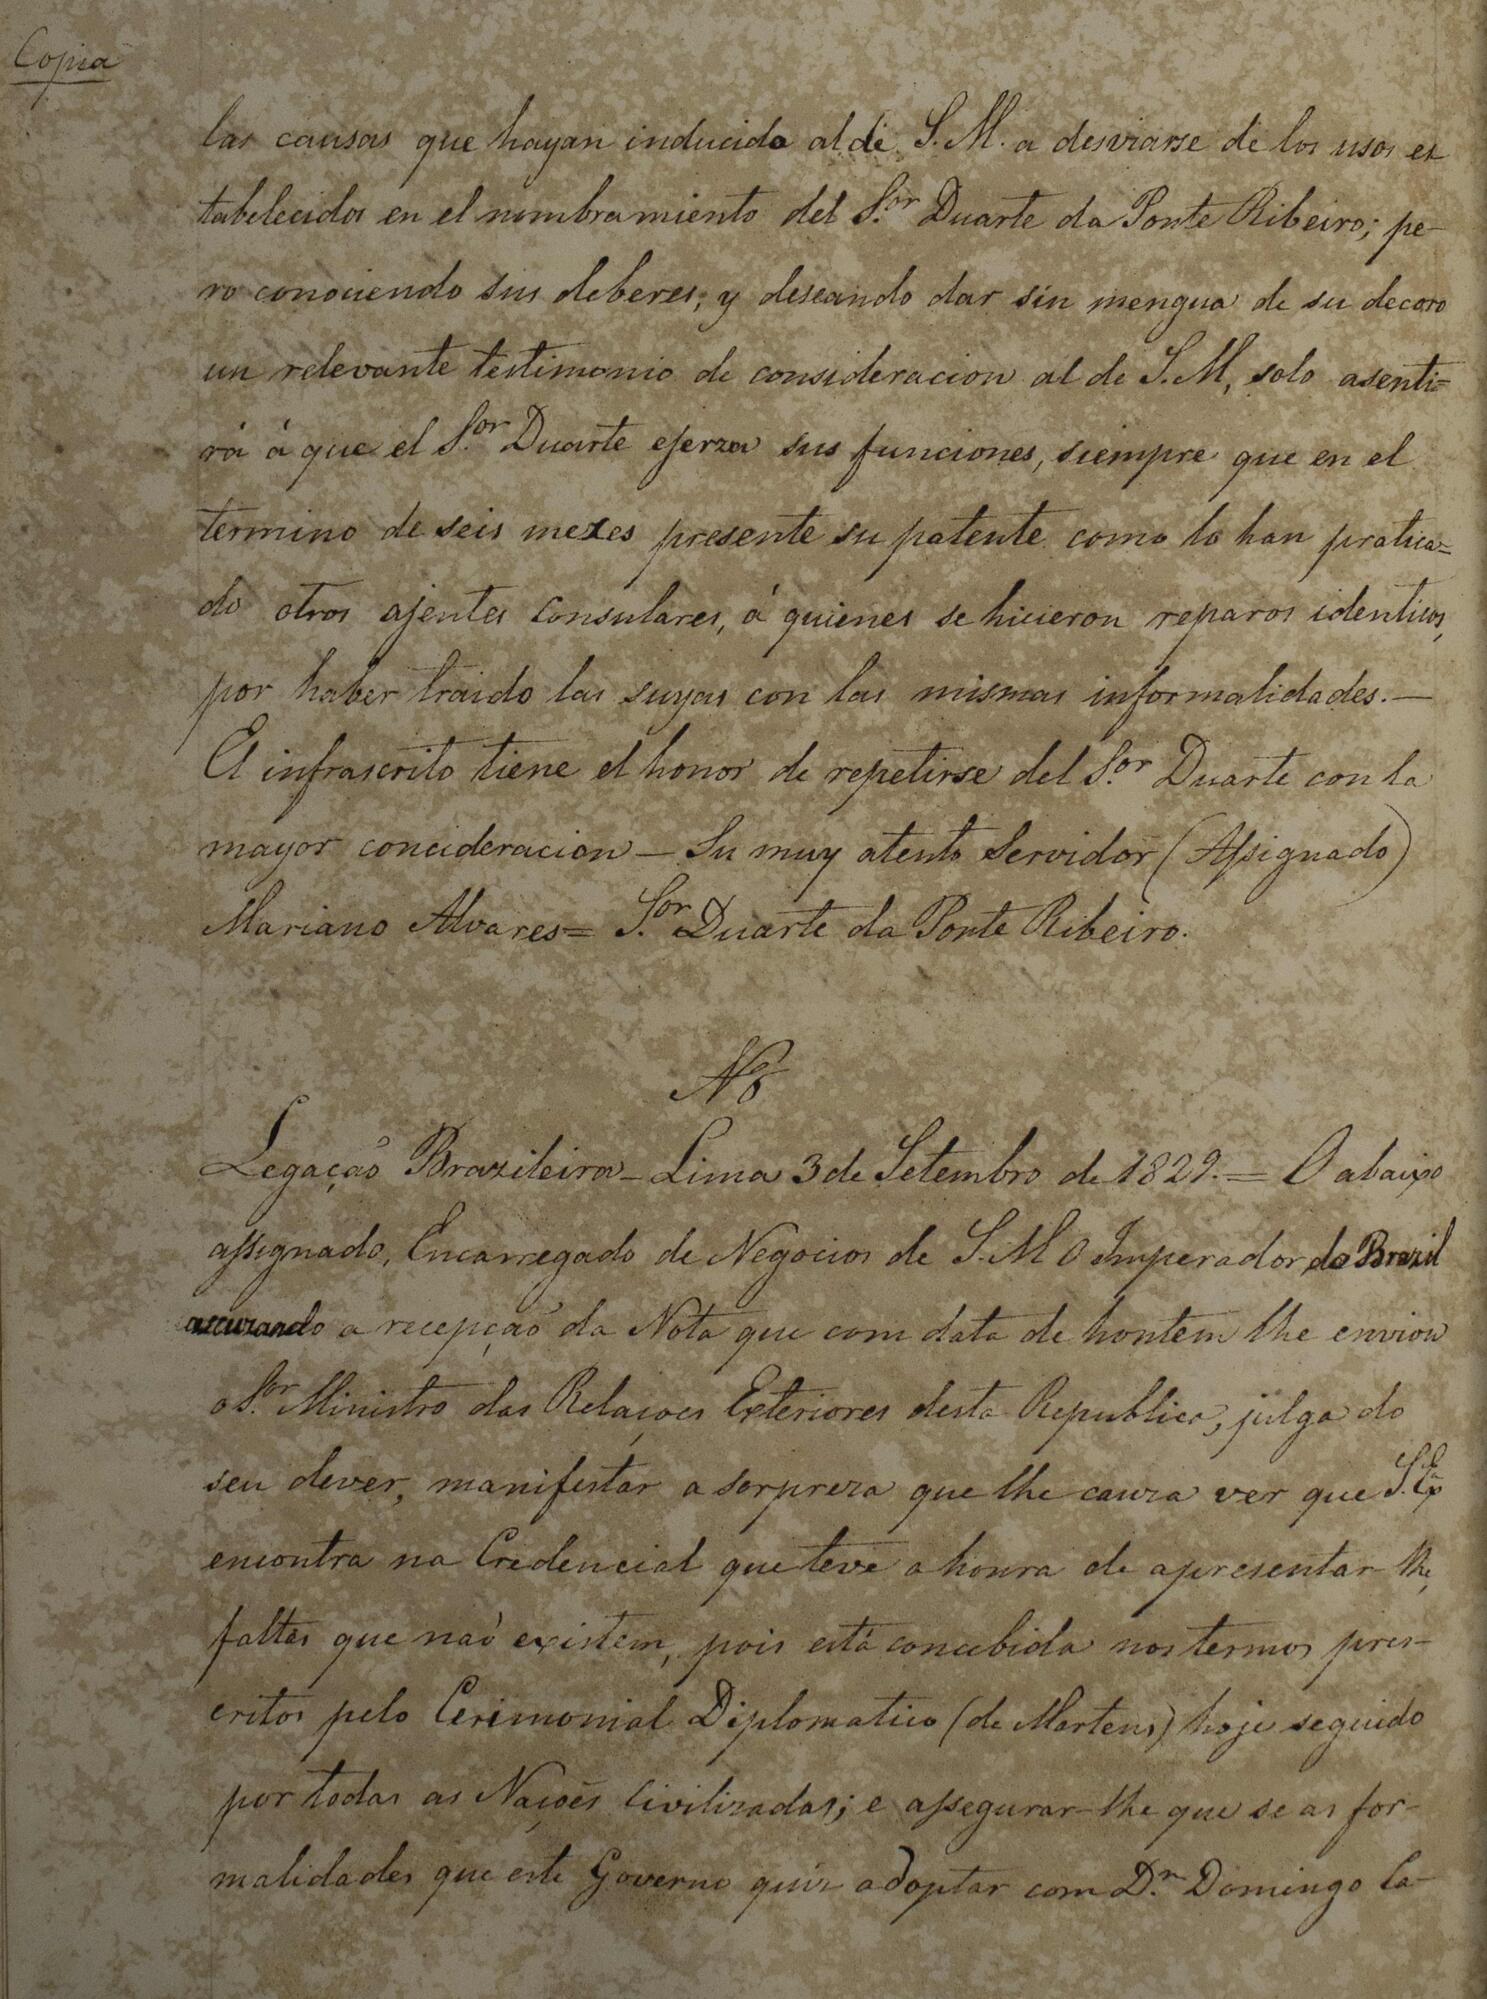 Copia
las causas que hayan inducido al de S. M. a desviarse de los usos es
tabelecidos en el nombramiento del S.or Duarte da Ponte Ribeiro; pe-
ro conociendo sus deberes, y deseando dar sin mengua de su decoro
un relevante testimonio de consideracion al de S. M, solo asenti=
rá á que el S.or Duarte ejerza sus funciones, siempre que en el
termino de seis mezes presente su patente como lo han pratica=
do otros ajentes Consulares, á quienes se hicieron reparos identicos,
por haber traido las suyas con las mismas informalidades. —
El infrascrito tiene el honor de repetirse del S.or Duarte con la
mayor concideracion — Su muy atento Servidor (Assignado)
Mariano Alvares = S.or Duarte da Ponte Ribeiro.
Nº
Legação Brazileira — Lima 3 de Setembro de 1829. = O abaixo
assignado, Encarregado de Negocios de S. M O Imperador do Brazil
accuzando a recepção da Nota que com data de hontem lhe enviou
o S.or Ministro das Relaçoes Exteriores desta Republica, julga do
seu dever, manifestar a sorpreza que lhe cauza ver que S. Exa
encontra na Credencial que teve a honra de apresentar-lhe,
faltas que naõ existem, pois está concebida nos termos pres-
critos pelo Cerimonial Diplomatico (de Martens) hoje seguido
por todas as Naçoẽs Civilizadas; e assegurar-lhe que se as for-
malidades que este Governo quiz adoptar com D.n Domingo Ca-